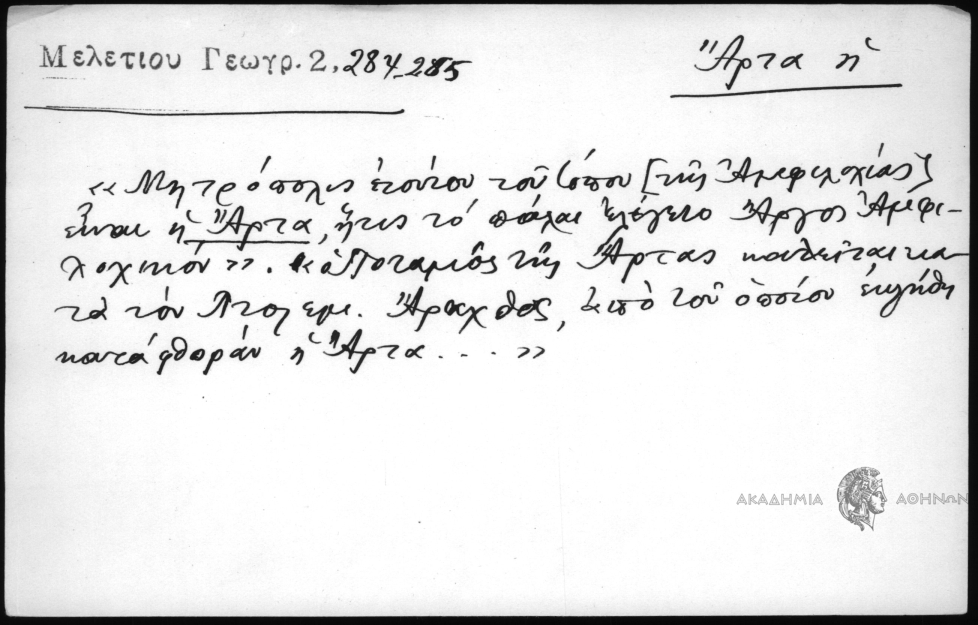 Μελετίου Γεωγρ. 2, 284-285
Ἄρτα ἡ
«Μητρόπολις ἐτούτου τοῦ τόπου [τῆς Ἀμφιλοχίας]
εἶναι ἡ Ἄρτα, ἥτις τὸ πάλαι ἐλέγετο Ἄργος Ἀμφι-
λοχικόν». «ὁ Ποταμὸς τῆς Ἄρτας καλεῖται κα-
τὰ τὸν Πτολεμ. Ἄραχθος, ἀπὸ τοῦ ὁποίου ἐκλήθη
κατὰ φθορὰν ἡ Ἄρτα . . . . »
ΑΚΑΔΗΜΙΑ ΑΘΗΝΩΝ